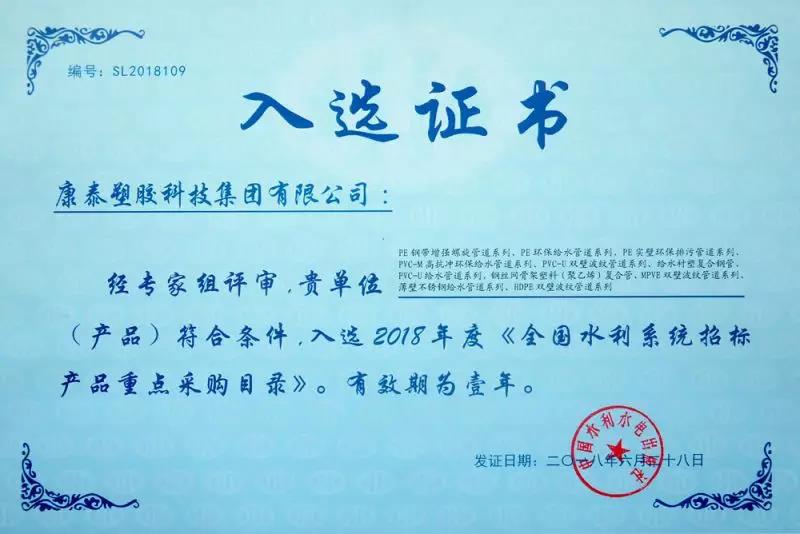 编号：SL2018109
入选证书
康泰塑胶科技集团有限公司：
PE 钢带增强螺旋管道系列、PE 环保给水管道系列、PE 实壁环保排污管道系列、
PVC-M 高抗冲环保给水管道系列、PVC-U 双壁波纹管道系列、给水衬塑复合钢管、
PVC-U 给水管道系列、钢丝网骨架塑料（聚乙烯）复合管、MPVE 双壁波纹管道系列、
薄壁不锈钢给水管道系列、HDPE 双壁波纹管道系列
经专家组评审，贵单位
（产品）符合条件，入选2018年度《全国水利系统招标
产品重点采购目录》。有效期为壹年。
中国水利水电出版社
发证日期：二〇一八年六月二十八日